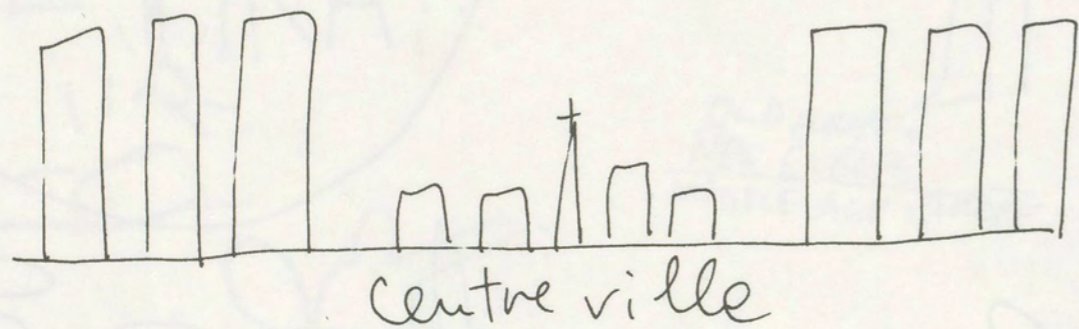 centre ville